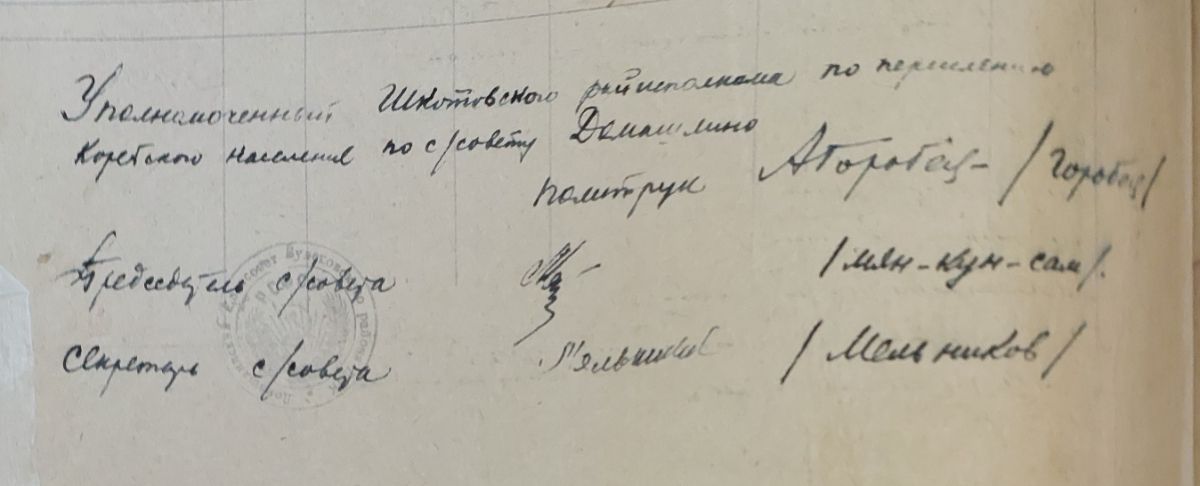 Уполномоченный Шкотовского райисполкома по переселению
Корейского населения по с/совету Домашлино
политрук АГоробец /Горобец/
Председатель с/совета /Мян-кун-сам/.
Секретарь с/совета Мельников /Мельников/